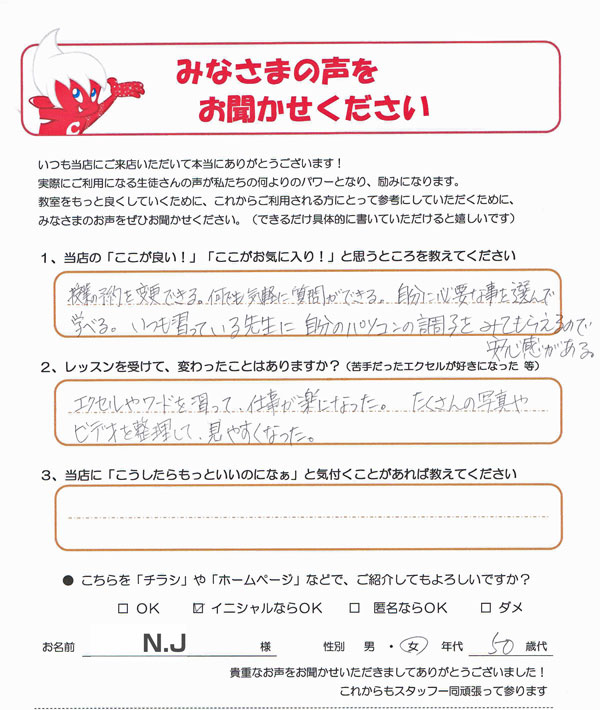 みなさまの声を
お聞かせください
C
いつも当店にご来店いただいて本当にありがとうございます！
実際にご利用になる生徒さんの声が私たちの何よりのパワーとなり、励みになります。
教室をもっと良くしていくために、これからご利用される方にとって参考にしていただくために、
みなさまのお声をぜひお聞かせください。（できるだけ具体的に書いていただけると嬉しいです）
1、当店の「ここが良い！」「ここがお気に入り！」と思うところを教えてください
授業の予約を変更できる。何でも気軽に質問ができる。自分に必要な事を選んで
学べる。いつも習っている先生に自分のパソコンの調子をみてもらえるので
安心感がある。
2、レッスンを受けて、変わったことはありますか？（苦手だったエクセルが好きになった 等）
エクセルやワードを習って、仕事が楽になった。 たくさんの写真や
ビデオを整理して、見やすくなった。
3、当店に「こうしたらもっといいのになぁ」と気付くことがあれば教えてください
● こちらを「チラシ」や「ホームページ」などで、ご紹介してもよろしいですか？
□ OK ☑ イニシャルならOK □ 匿名ならOK □ ダメ
お名前 N.J 様 性別 男 ・ 女 年代 50 歳代
貴重なお声をお聞かせいただきましてありがとうございました！
これからもスタッフ一同頑張って参ります